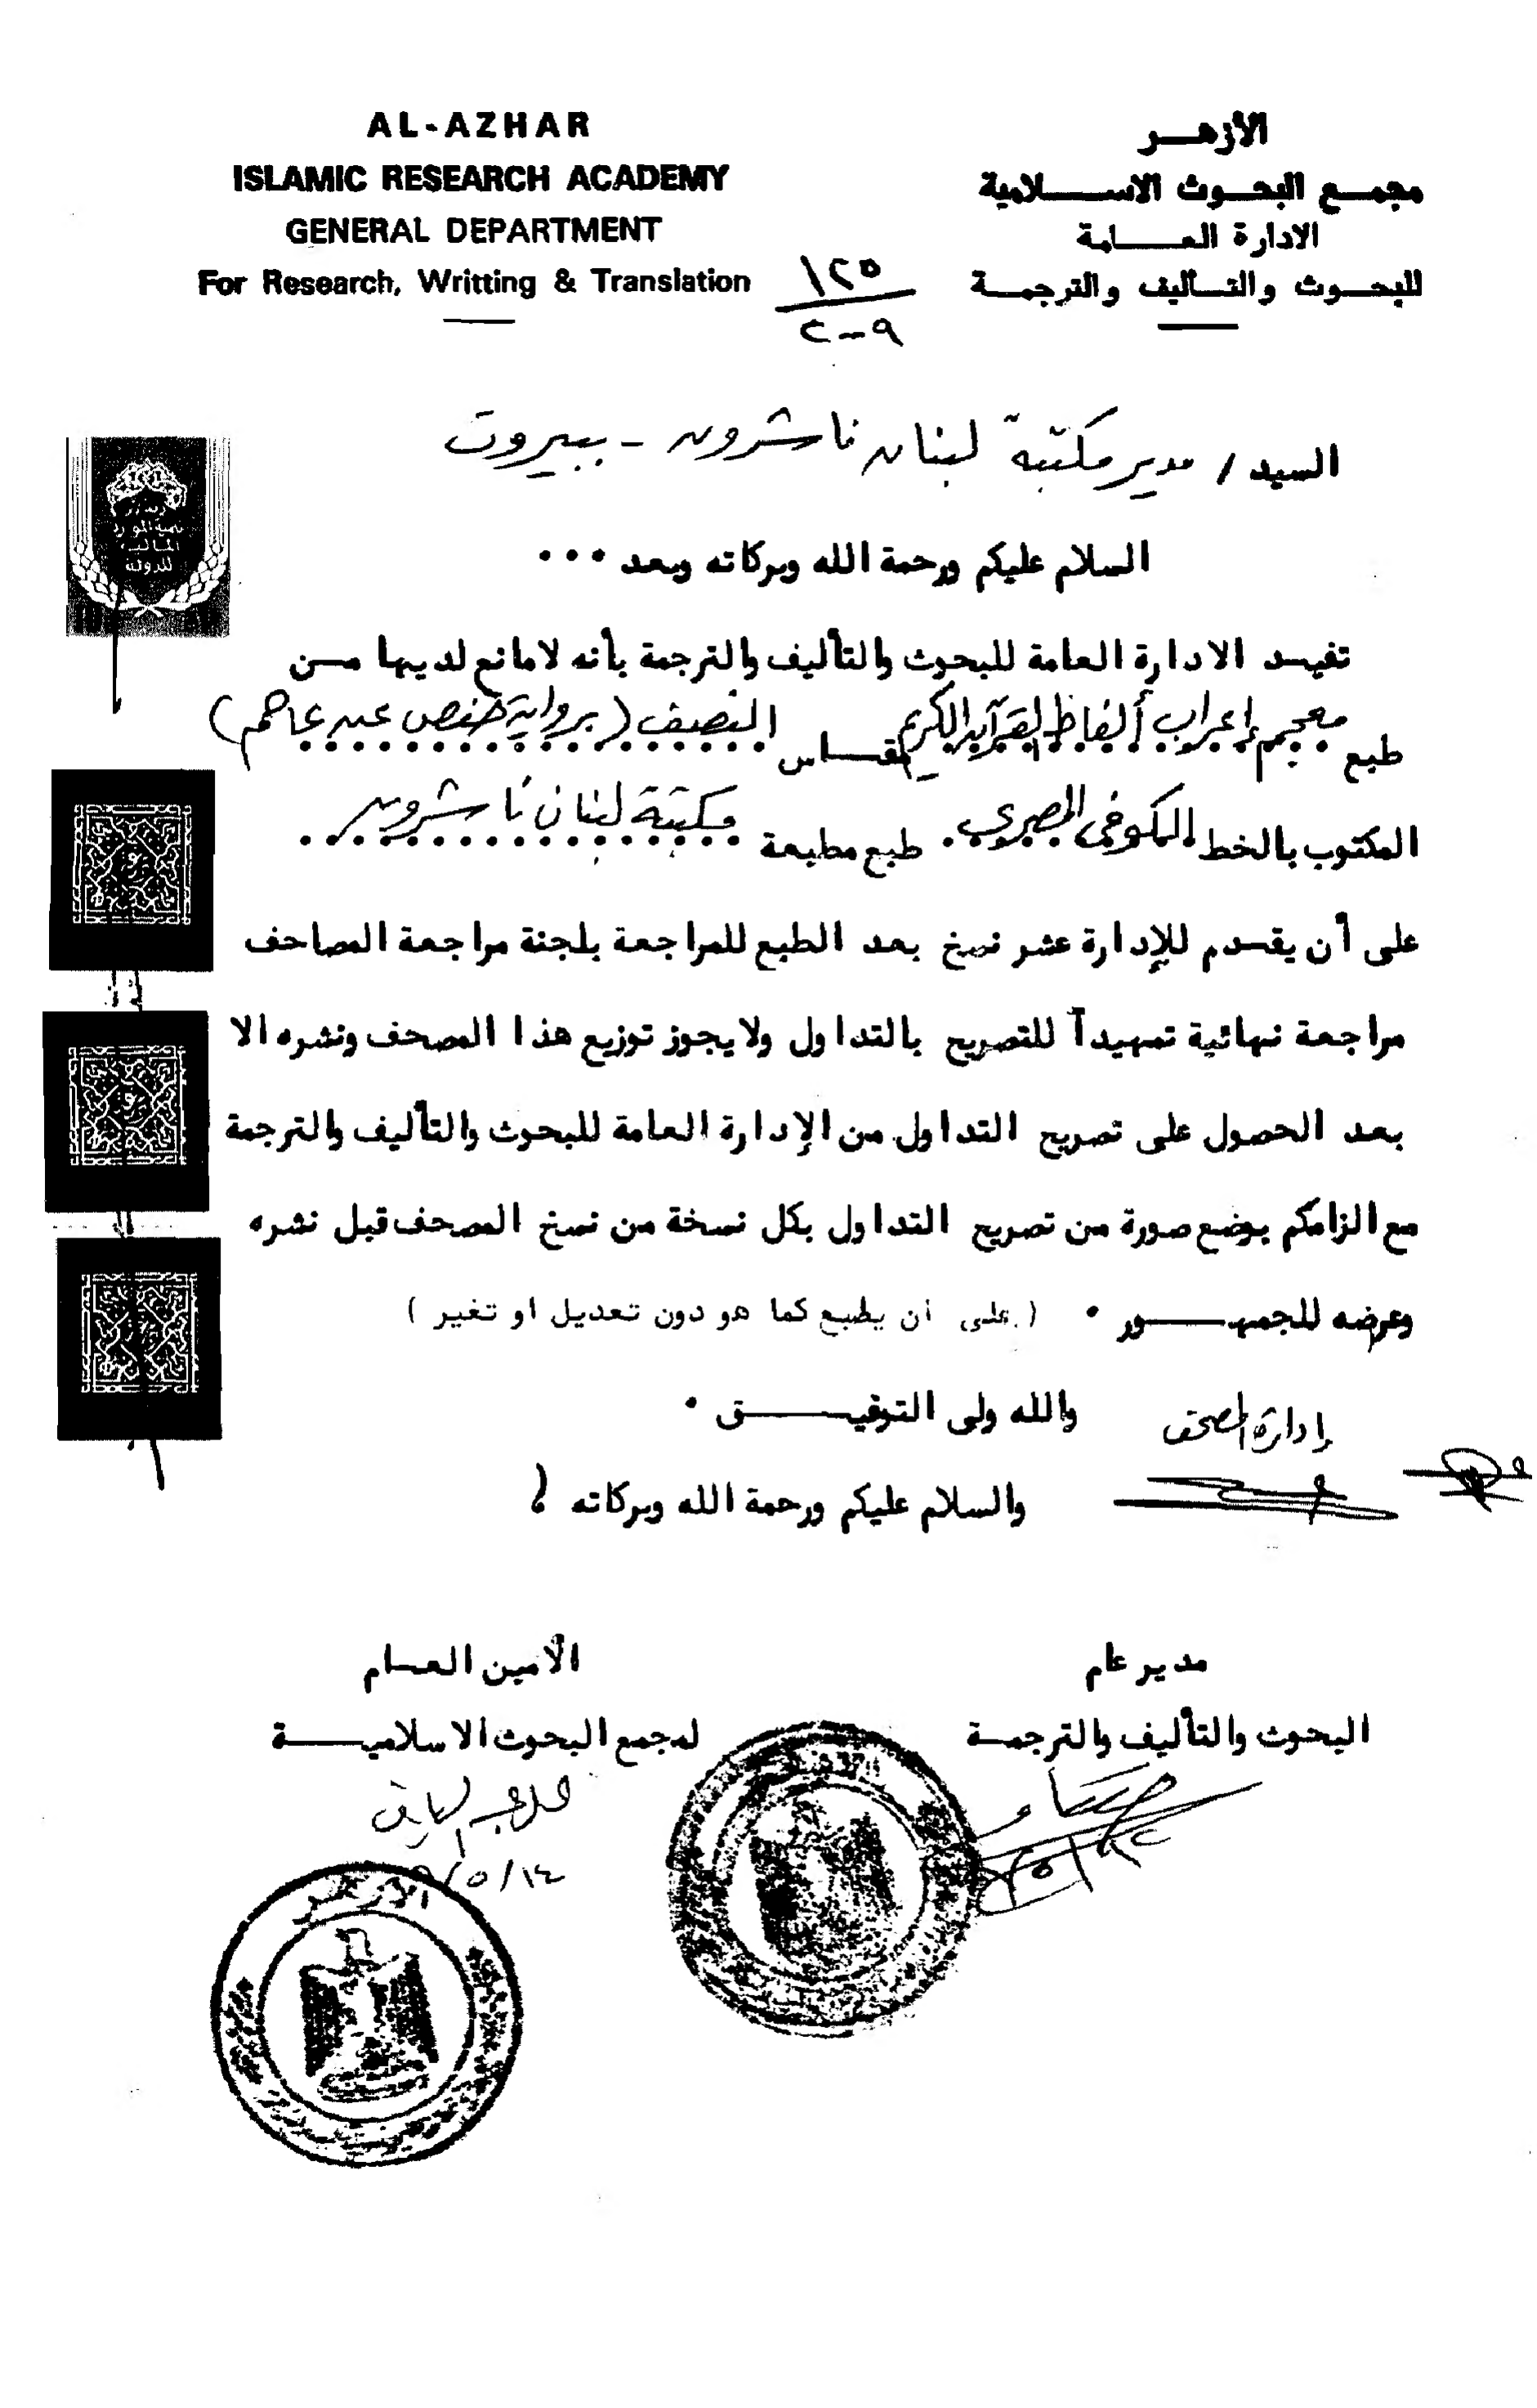 AL-AZHAR
ISLAMIC RESEARCH ACADEMY
GENERAL DEPARTMENT
For Research, Writting & Translation
الأزهـــر
مجمـــع البحـــوث الاســـــلامية
الادارة العـــــامة
للبحـــوث والتـــأليف والترجمـــة
١٢٥
٢٠٠٩
السيد / مدير مكتبة لبنان ناشرون - بيروت
السلام عليكم ورحمة الله وبركاته وبعد ...
تفيـــد الادارة العامة للبحوث والتأليف والترجمة بأنه لامانع لديها مـــن
طبع معجم إعراب ألفاظ القرآن الكريم مقـــاس النصيف (برواية حفص عن عاصم)
المكتوب بالخط الكوفي المصري . طبع مطبعة مكتبة لبنان ناشرون
على أن يقـــدم للإدارة عشر نسخ بعد الطبع للمراجعة بلجنة مراجعة المصاحف
مراجعة نهائية تمهيدآ للتصريح بالتداول ولايجوز توزيع هذا المصحف ونشره الا
بعد الحصول على تصريح التداول من الإدارة العامة للبحوث والتأليف والترجمة
مع الزامكم بوضع صورة من تصريح التداول بكل نسخة من نسخ المصحف قبل نشره
وعرضه للجمهـــــور . ( على ان يطبع كما هو دون تعديل او تغير )
والله ولى التوفيـــــق .
إدارة المصحف
والسلام عليكم ورحمة الله وبركاته
مدير عام
البحوث والتأليف والترجمـــة
الأمين العـــام
لمجمع البحوث الاسلاميـــــة
١٤/٥/
الأزهر